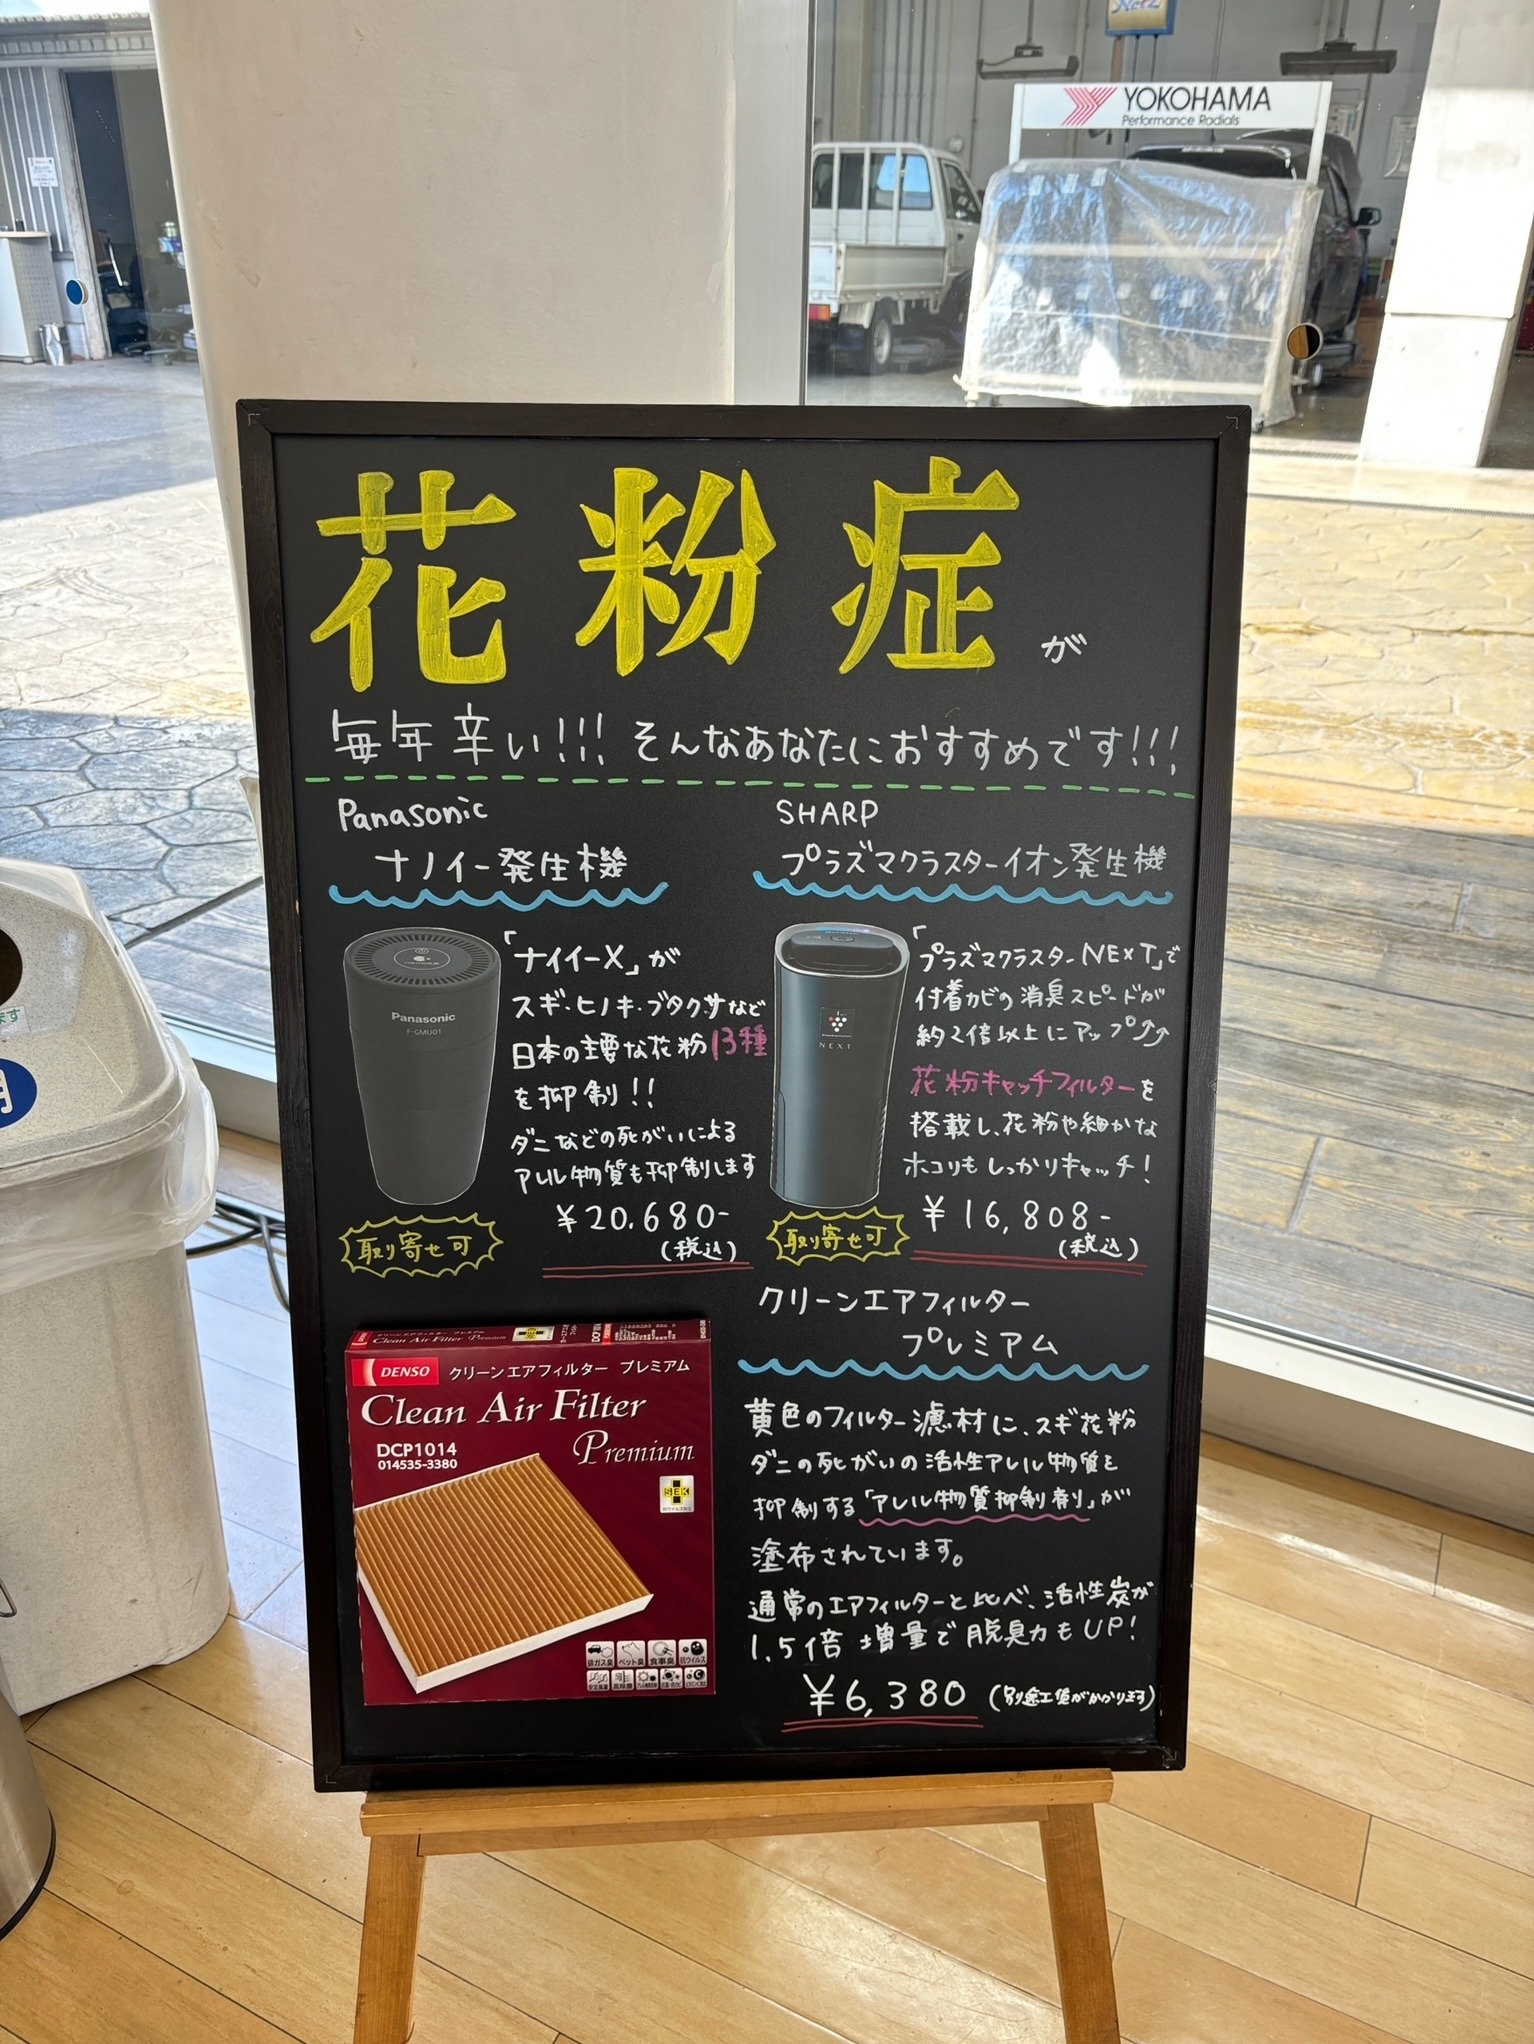 Netz
YOKOHAMA
Performance Radials
花粉症が
毎年辛い!!! そんなあなたにおすすめです!!!
Panasonic
ナノイー発生機
Panasonic
F-GMU01
「ナイイーX」が
スギ・ヒノキ・ブタクサなど
日本の主要な花粉13種
を抑制!!
ダニなどの死がいによる
アレル物質も抑制します
¥20.680-
(税込)
取り寄せ可
SHARP
プラズマクラスターイオン発生機
NEXT
「プラズマクラスターNEXT」で
付着カビの消臭スピードが
約2倍以上にアップ⤴⤴
花粉キャッチフィルターを
搭載し、花粉や細かな
ホコリもしっかりキャッチ!
¥16,808-
(税込)
取り寄せ可
クリーンエアフィルター プレミアム
Clean Air Filter Premium
DENSO クリーンエアフィルター プレミアム
Clean Air Filter
Premium
DCP1014
014535-3380
SEK
排ガス臭 ペット臭 食事臭 抗ウイルス
クリーンエアフィルター
プレミアム
黄色のフィルター濾材に、スギ花粉
ダニの死がいの活性アレル物質を
抑制する「アレル物質抑制剤」が
塗布されています。
通常のエアフィルターと比べ、活性炭が
1.5倍増量で脱臭力もUP!
¥6,380 (別途工賃がかかります)